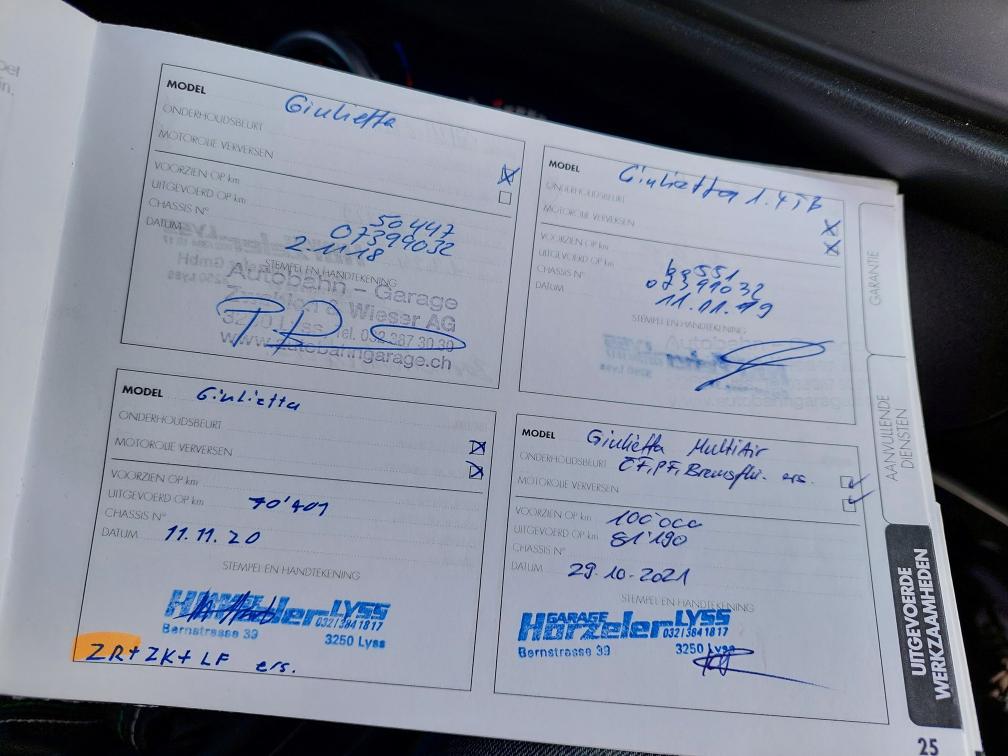 MODEL Giulietta
ONDERHOUDSBEURT
MOTOROLIE VERVERSEN
VOORZIEN OP km
UITGEVOERD OP km 50447
CHASSIS N° 07399032
DATUM 2.1118
STEMPEL EN HANDTEKENING
Autobahn - Garage
& Wieser AG
3250 Lyss, Tel. 032 387 30 30
www.autobahngarage.ch
MODEL Giulietta 1.4TB
ONDERHOUDSBEURT
MOTOROLIE VERVERSEN
VOORZIEN OP km
UITGEVOERD OP km
CHASSIS N° 07399032
DATUM 11.01.19
STEMPEL EN HANDTEKENING
MODEL Giulietta
ONDERHOUDSBEURT
MOTOROLIE VERVERSEN
VOORZIEN OP km
UITGEVOERD OP km 70'401
CHASSIS N°
DATUM 11.11.20
STEMPEL EN HANDTEKENING
LYSS
032/384 18 17
Bernstrasse 39 3250 Lyss
ZR+ZK+LF ers.
MODEL Giulietta MultiAir
ONDERHOUDSBEURT ÖF, PF, Bremsflü. ers.
MOTOROLIE VERVERSEN
VOORZIEN OP km 100'000
UITGEVOERD OP km 81'190
CHASSIS N°
DATUM 29.10.2021
STEMPEL EN HANDTEKENING
GARAGE
Hürzeler LYSS
032/384 18 17
Bernstrasse 39 3250 Lyss
GARANTIE
AANVULLENDE
DIENSTEN
UITGEVOERDE
WERKZAAMHEDEN
25